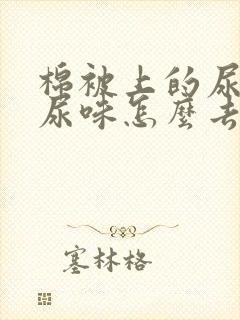 棉被上的尿
尿味怎麼去
塞林格